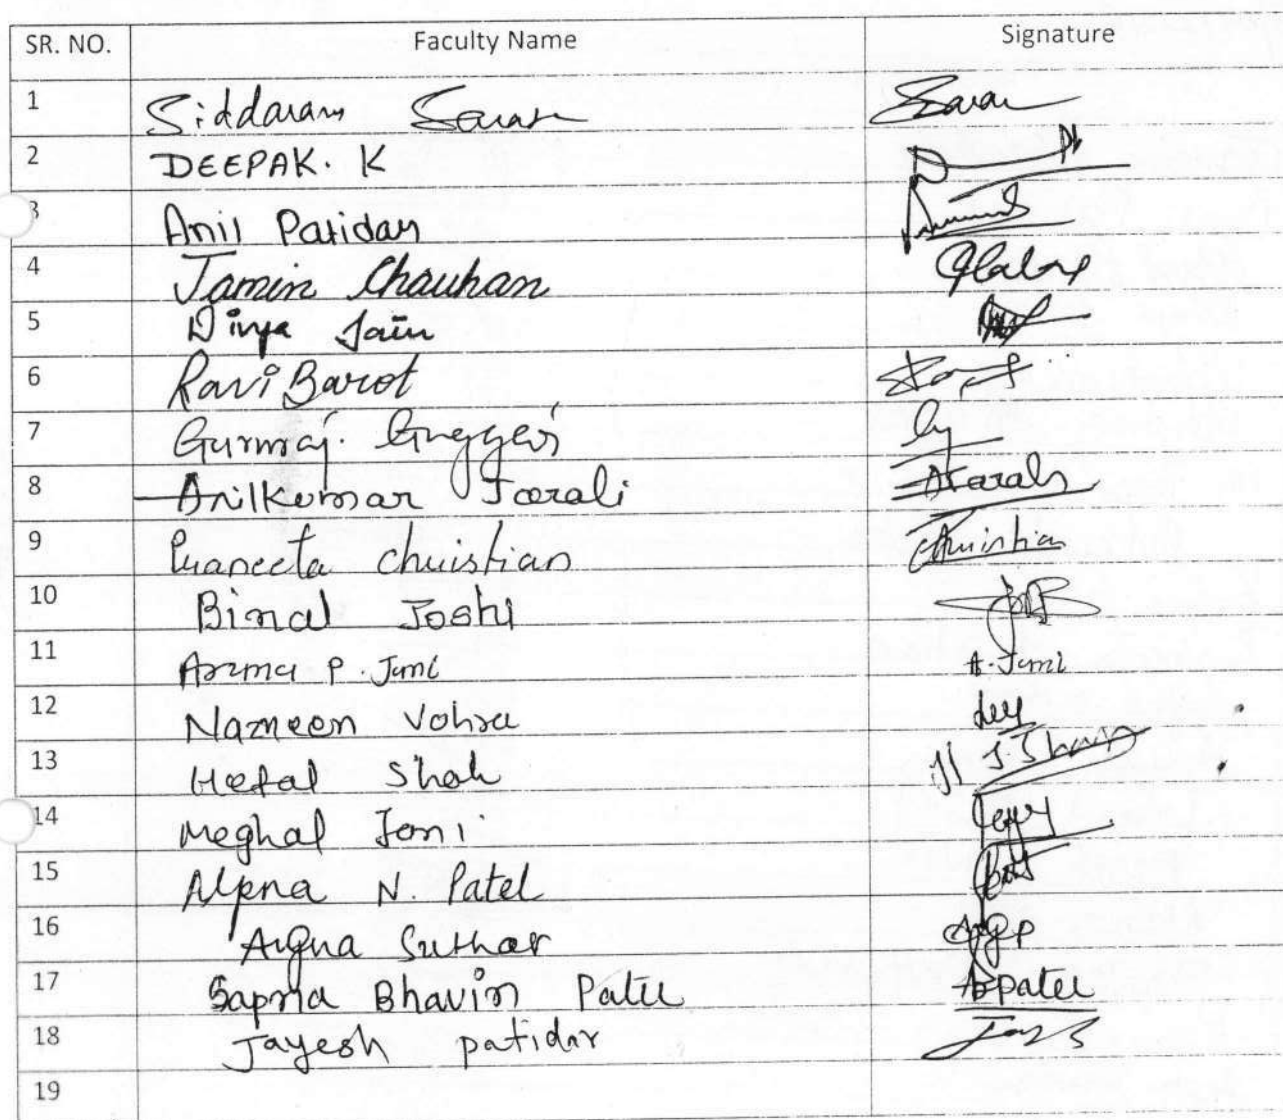 SR. NO. Faculty Name Signature
1 Siddaram Saran Saran
2 DEEPAK. K
3 Anil Patidar
4 Jamin Chauhan
5 Divya Jain
6 Ravi Barot
7 Gurmaj.
8 Anilkumar Tarali
9 Praneeta Christian Christian
10 Binal Joshi
11 P. Jani A. Jani
12 Nazneen Vohra
13 Hetal Shah J. Shah
14 Meghal Jani
15 Alpna N. Patel
16 Suthar
17 Sapna Bhavin Patel Patel
18 Jayesh patidar
19